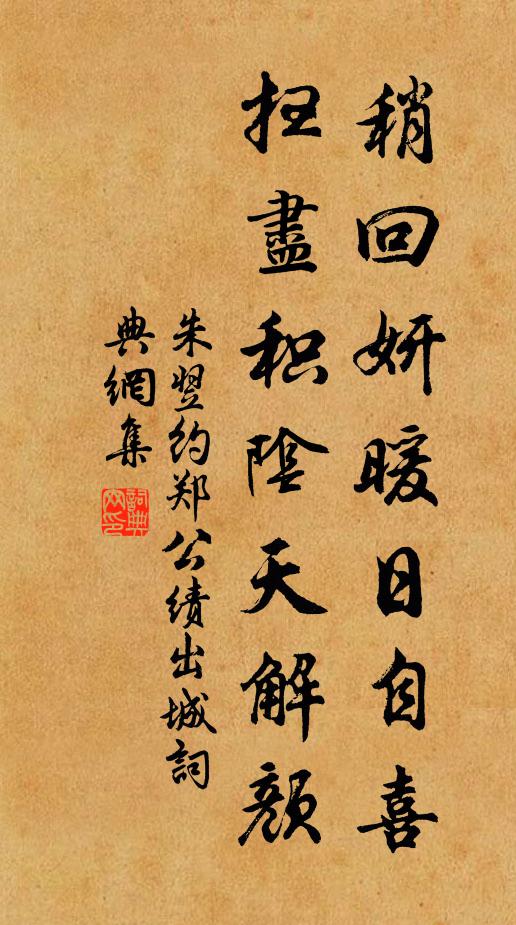 稍回妍暖日自喜
扫盡积陰天解颜
朱翌约郑公绩出城詞
典網集
詞典網印